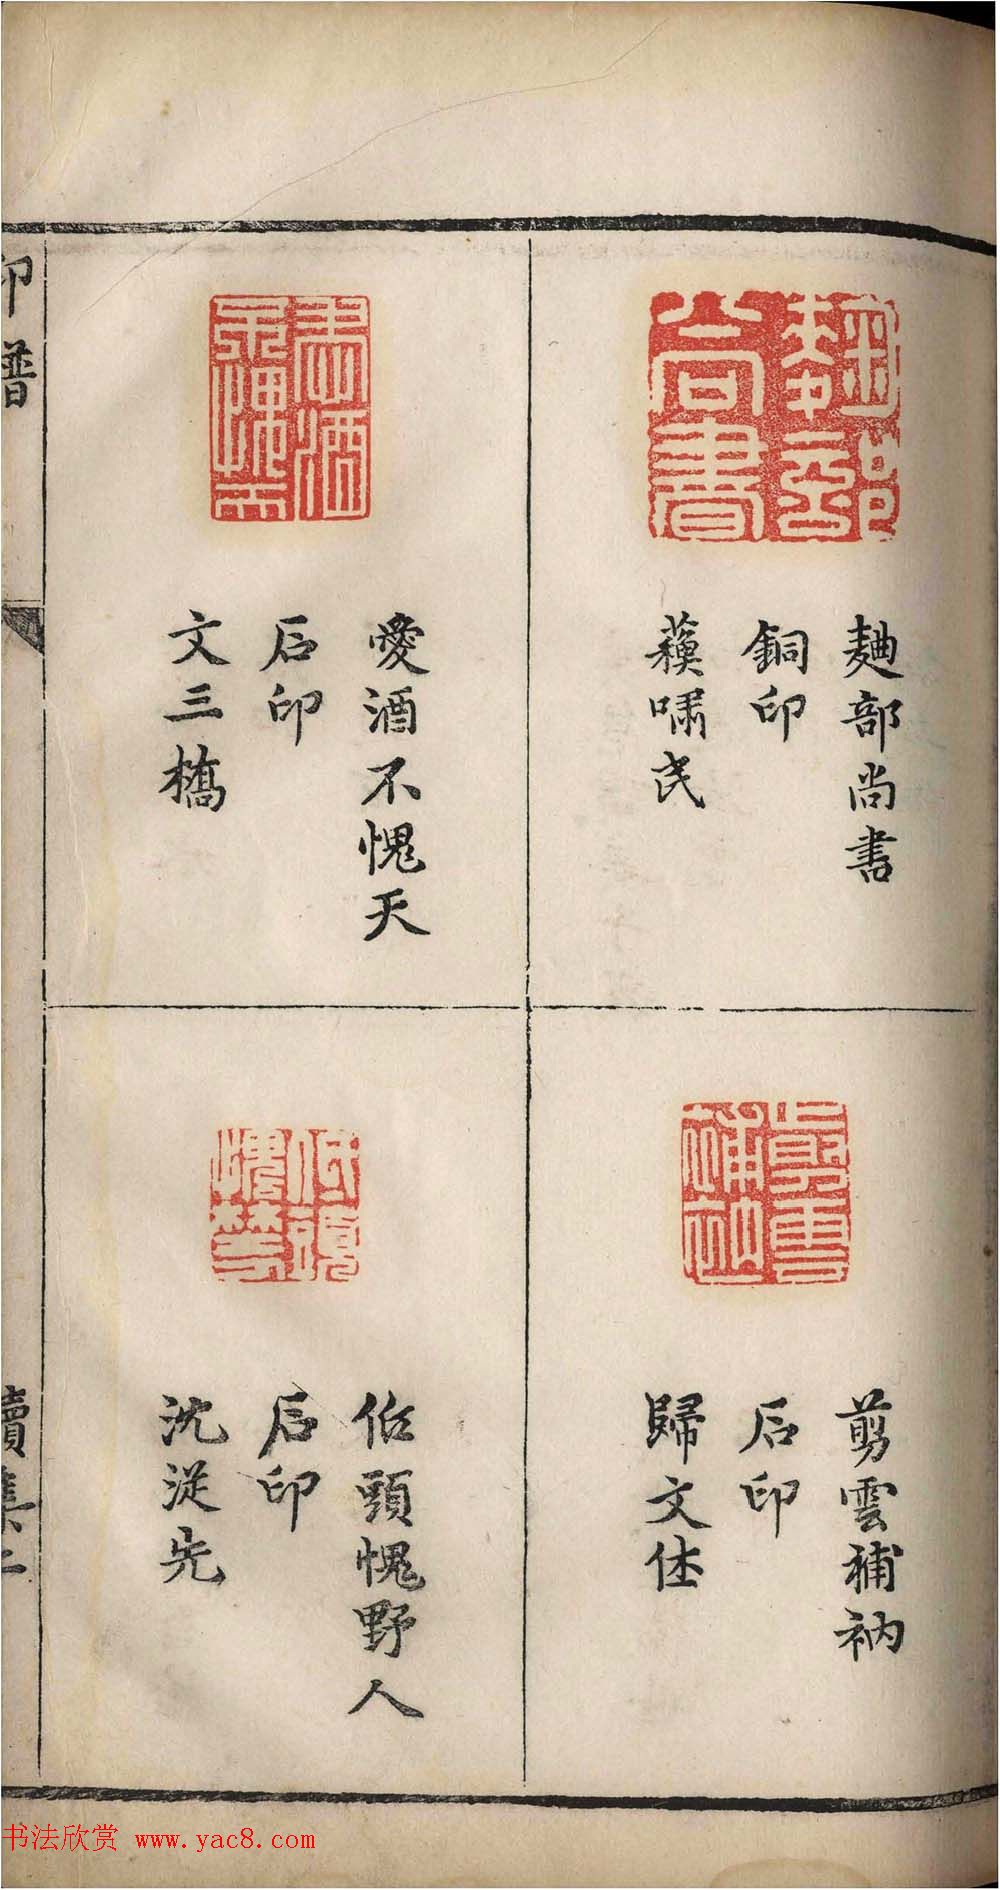 麯部尚書
麯部尚書
銅印
蘓嘯民
剪雲補衲
剪雲補衲
石印
歸文休
愛酒不愧天
石印
文三橋
低頭愧野人
石印
沈從先
印譜
續集二
书法欣赏 www.yac8.com